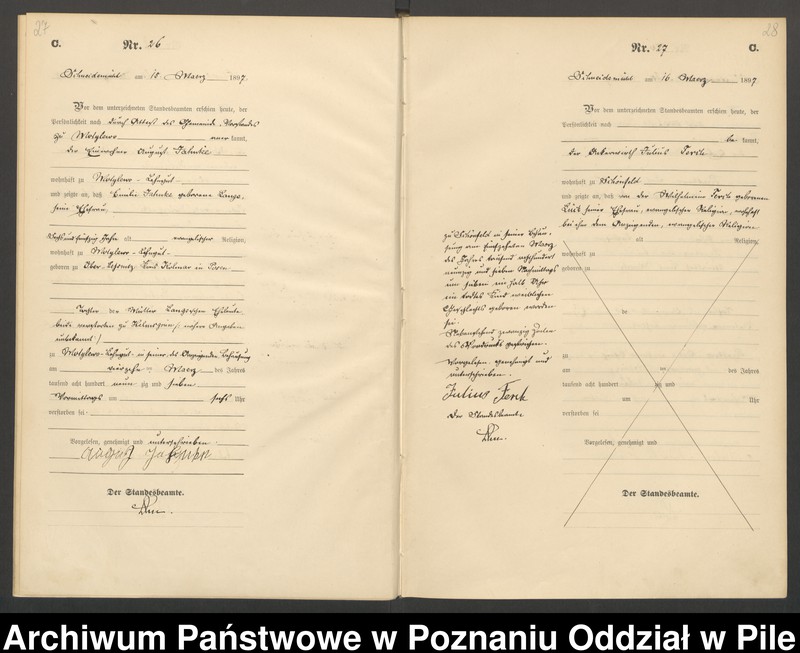 27
C.
Nr. 26
Schneidemühl am 15 Maerz 1897.
Vor dem unterzeichneten Standesbeamten erschien heute, der
Persönlichkeit nach durch Attest des Gemeinde-Vorstandes
zu Motylewo kannt,
der Einwohner August Jahnke
wohnhaft zu Motylewo-
und zeigte an, daß Emilie Jahnke geborene Lange,
seine Ehefrau,
alt evangelischer Religion,
wohnhaft zu Motylewo-
geboren zu Kolmar in Posen
Tochter der Müller Lange'schen Eheleute
beide verstorben zu nähere Angaben
unbekannt /
zu Motylewo- in seiner des Anzeigenden Behausung
am vierzehn ten Maerz des Jahres
tausend acht hundert neun zig und sieben
Vormittags um sechs Uhr
verstorben sei.
Vorgelesen, genehmigt und unterschrieben.
August Jahnke
Der Standesbeamte.
28
Nr. 27
C.
Schneidemühl am 16 Maerz 1897
Vor dem unterzeichneten Standesbeamten erschien heute, der
Persönlichkeit nach
be kannt,
der Julius Ferch
wohnhaft zu Schönfeld
und zeigte an, daß von der Wilhelmine Ferch geborenen
seiner Ehefrau, evangelischer Religion, wohnhaft
bei ihm dem Anzeigenden, evangelischer Religion
alt Religion,
wohnhaft zu
geboren zu
de
zu
am ten des Jahres
tausend acht hundert zig und
um Uhr
verstorben sei
Vorgelesen, genehmigt und
Der Standesbeamte.
zu Schönfeld in seiner Behau-
sung am fünfzehnten Maerz
des Jahres tausend achthundert
neunzig und sieben Nachmittags
um sieben ein halb Uhr
ein todtes Kind weiblichen
Geschlechts geboren worden
sei.
Nebenstehend zwanzig Zeilen
des Vordrucks gestrichen.
Vorgelesen genehmigt und
unterschrieben.
Julius Ferch
Der Standesbeamte
Archiwum Państwowe w Poznaniu Oddział w Pile